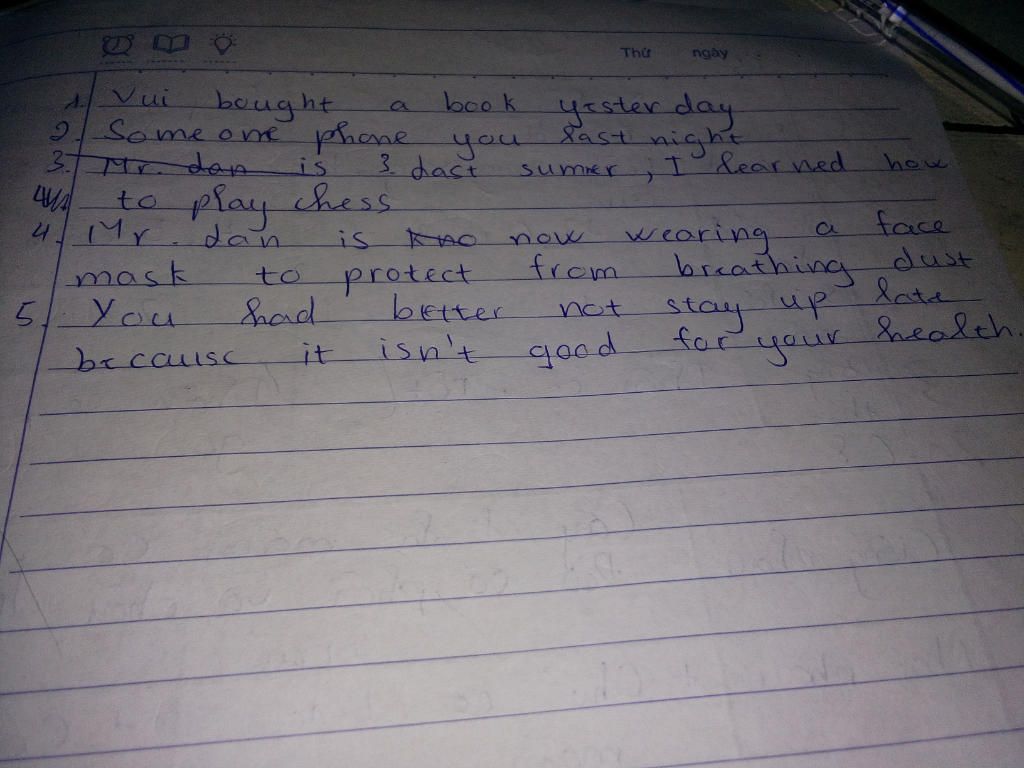 Thứ ngày
1. Vui bought a book yesterday
2. Some one phone you last night
3. Mr. dan is 3. Last summer, I learned how
to play chess
4. Mr. dan is kno now wearing a face
mask to protect from breathing dust
5. You had better not stay up late
because it isn't good for your health.